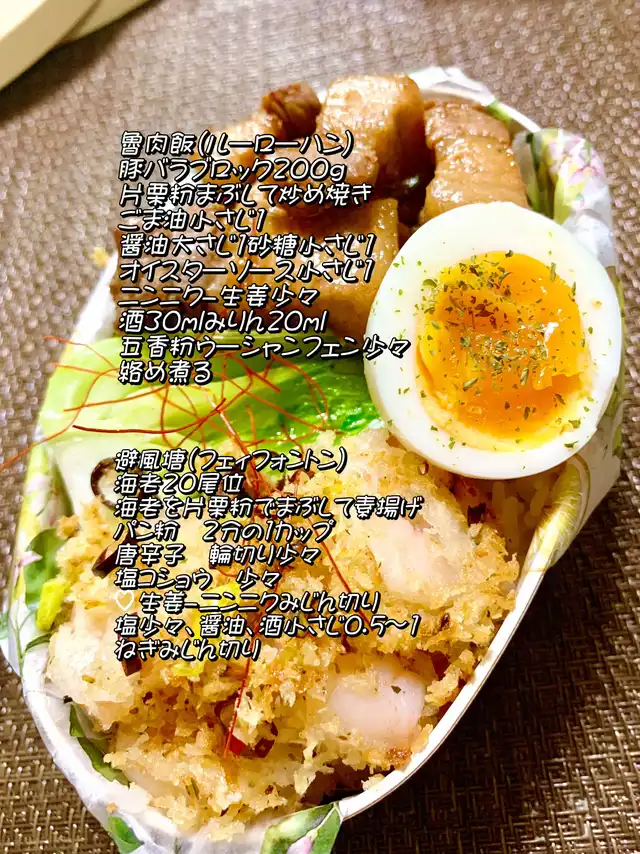 魯肉飯(ルーローハン)
豚バラブロック200g
片栗粉まぶして炒め焼き
ごま油小さじ1
醤油大さじ1砂糖小さじ1
オイスターソース小さじ1
ニンニク-生姜少々
酒30mlみりん20ml
五香粉ウーシャンフェン少々
絡め煮る
避風塘(フェイフォントン)
海老20尾位
海老を片栗粉でまぶして素揚げ
パン粉　2分の1カップ
唐辛子　輪切り少々
塩コショウ　少々
♡生姜-ニンニクみじん切り
塩少々、醤油、酒小さじ0.5〜1
ねぎみじん切り